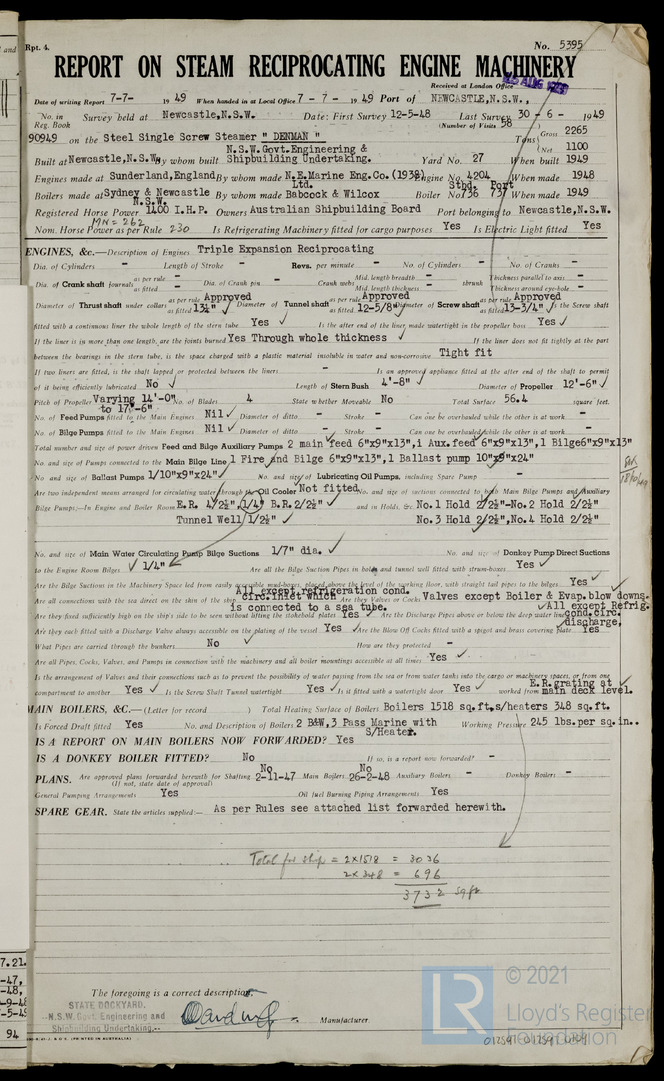 Rpt. 4.
No. 5395
REPORT ON STEAM RECIPROCATING ENGINE MACHINERY
Received at London Office
Date of writing Report 7-7- 19 49 When handed in at Local Office 7 - 7 - 19 49 Port of NEWCASTLE,N.S.W.,
No. in Reg. Book Survey held at Newcastle,N.S.W. Date: First Survey 12-5-48 Last Survey 30 - 6 - 1949
(Number of Visits 58
90949 on the Steel Single Screw Steamer " DENMAN " Tons Gross 2265
Net 1100
Built at Newcastle,N.S.W. By whom built N.S.W.Govt.Engineering & Shipbuilding Undertaking. Yard No. 27 When built 1949
Engines made at Sunderland,England By whom made N.E.Marine Eng.Co.(1938) Ltd. Engine No. 4204 When made 1948
Boilers made at Sydney & Newcastle N.S.W. By whom made Babcock & Wilcox Boiler No. Stbd. 736 Port 737 When made 1949
Registered Horse Power 1400 I.H.P. Owners Australian Shipbuilding Board Port belonging to Newcastle,N.S.W.
MN = 262
Nom. Horse Power as per Rule 230 Is Refrigerating Machinery fitted for cargo purposes Yes Is Electric Light fitted Yes
ENGINES, &c.—Description of Engines Triple Expansion Reciprocating
Dia. of Cylinders - Length of Stroke - Revs. per minute - No. of Cylinders - No. of Cranks -
Dia. of Crank shaft journals as per rule - as fitted - Dia. of Crank pin - Crank webs Mid. length breadth - Mid. length thickness - shrunk Thickness parallel to axis - Thickness around eye-hole -
Diameter of Thrust shaft under collars as per rule Approved as fitted 13¼" Diameter of Tunnel shaft as per rule Approved as fitted 12-5/8" Diameter of Screw shaft as per rule Approved as fitted 13-3/4" Is the Screw shaft
fitted with a continuous liner the whole length of the stern tube Yes ✓ Is the after end of the liner made watertight in the propeller boss Yes ✓
If the liner is in more than one length, are the joints burned Yes Through whole thickness ✓ If the liner does not fit tightly at the part
between the bearings in the stern tube, is the space charged with a plastic material insoluble in water and non-corrosive Tight fit
If two liners are fitted, is the shaft lapped or protected between the liners - Is an approved appliance fitted at the after end of the shaft to permit
of it being efficiently lubricated No ✓ Length of Stern Bush 4'-8" ✓ Diameter of Propeller 12'-6" ✓
Pitch of Propeller Varying 14'-0" to 17'-6" No. of Blades 4 State whether Moveable No Total Surface 56.4 square feet.
No. of Feed Pumps fitted to the Main Engines Nil ✓ Diameter of ditto - Stroke - Can one be overhauled while the other is at work -
No. of Bilge Pumps fitted to the Main Engines Nil ✓ Diameter of ditto - Stroke - Can one be overhauled while the other is at work -
Total number and size of power driven Feed and Bilge Auxiliary Pumps 2 main feed 6"x9"x13",1 Aux.feed 6"x9"x13",1 Bilge6"x9"x13"
No. and size of Pumps connected to the Main Bilge Line 1 Fire and Bilge 6"x9"x13",1 Ballast pump 10"x9"x24"
No. and size of Ballast Pumps 1/10"x9"x24" ✓ No. and size of Lubricating Oil Pumps, including Spare Pump -
Are two independent means arranged for circulating water through the Oil Cooler Not fitted No. and size of suctions connected to both Main Bilge Pumps and Auxiliary
Bilge Pumps;—In Engine and Boiler Room E.R. 4/2½",1/4" B.R.2/2½" ✓ and in Holds, &c No.1 Hold 2/2½"-No.2 Hold 2/2½"
Tunnel Well 1/2½" ✓ No.3 Hold 2/2½",No.4 Hold 2/2½"
No. and size of Main Water Circulating Pump Bilge Suctions 1/7" dia. ✓ No. and size of Donkey Pump Direct Suctions
to the Engine Room Bilges ✓ 1/4" Are all the Bilge Suction Pipes in holds and tunnel well fitted with strum-boxes Yes ✓
Are the Bilge Suctions in the Machinery Space led from easily accessible mud-boxes, placed above the level of the working floor, with straight tail pipes to the bilges Yes ✓
Are all connections with the sea direct on the skin of the ship All except refrigeration cond. circ.inlet which is connected to a sea tube. Are they Valves or Cocks Valves except Boiler & Evap.blow downs.
Are they fixed sufficiently high on the ship's side to be seen without lifting the stokehold plates Yes ✓ Are the Discharge Pipes above or below the deep water line All except Refrig. cond.circ. discharge,
Are they each fitted with a Discharge Valve always accessible on the plating of the vessel Yes ✓ Are the Blow Off Cocks fitted with a spigot and brass covering plate Yes
What Pipes are carried through the bunkers No ✓ How are they protected -
Are all Pipes, Cocks, Valves, and Pumps in connection with the machinery and all boiler mountings accessible at all times Yes ✓
Is the arrangement of Valves and their connections such as to prevent the possibility of water passing from the sea or from water tanks into the cargo or machinery spaces, or from one
compartment to another Yes ✓ Is the Screw Shaft Tunnel watertight Yes ✓ Is it fitted with a watertight door Yes ✓ worked from E.R.grating at main deck level.
MAIN BOILERS, &C.—(Letter for record ) Total Heating Surface of Boilers Boilers 1518 sq.ft.s/heaters 348 sq.ft.
Is Forced Draft fitted Yes No. and Description of Boilers 2 B&W,3 Pass Marine with S/Heater. Working Pressure 245 lbs.per sq.in..
IS A REPORT ON MAIN BOILERS NOW FORWARDED? Yes
IS A DONKEY BOILER FITTED? No If so, is a report now forwarded? -
PLANS. Are approved plans forwarded herewith for Shafting No 2-11-47 Main Boilers No 26-2-48 Auxiliary Boilers - Donkey Boilers -
(If not, state date of approval)
General Pumping Arrangements Yes Oil fuel Burning Piping Arrangements Yes
SPARE GEAR. State the articles supplied:— As per Rules see attached list forwarded herewith.
Total for ship = 2x1518 = 3036
2x348 = 696
3732 sqft
The foregoing is a correct description.
STATE DOCKYARD.
N.S.W. Govt. Engineering and
Shipbuilding Undertaking.
Manufacturer
(PRINTED IN AUSTRALIA)
7.21.
-47,
-48,
-9-48
-5-49
94
LR © 2021
Lloyd's Register
Foundation